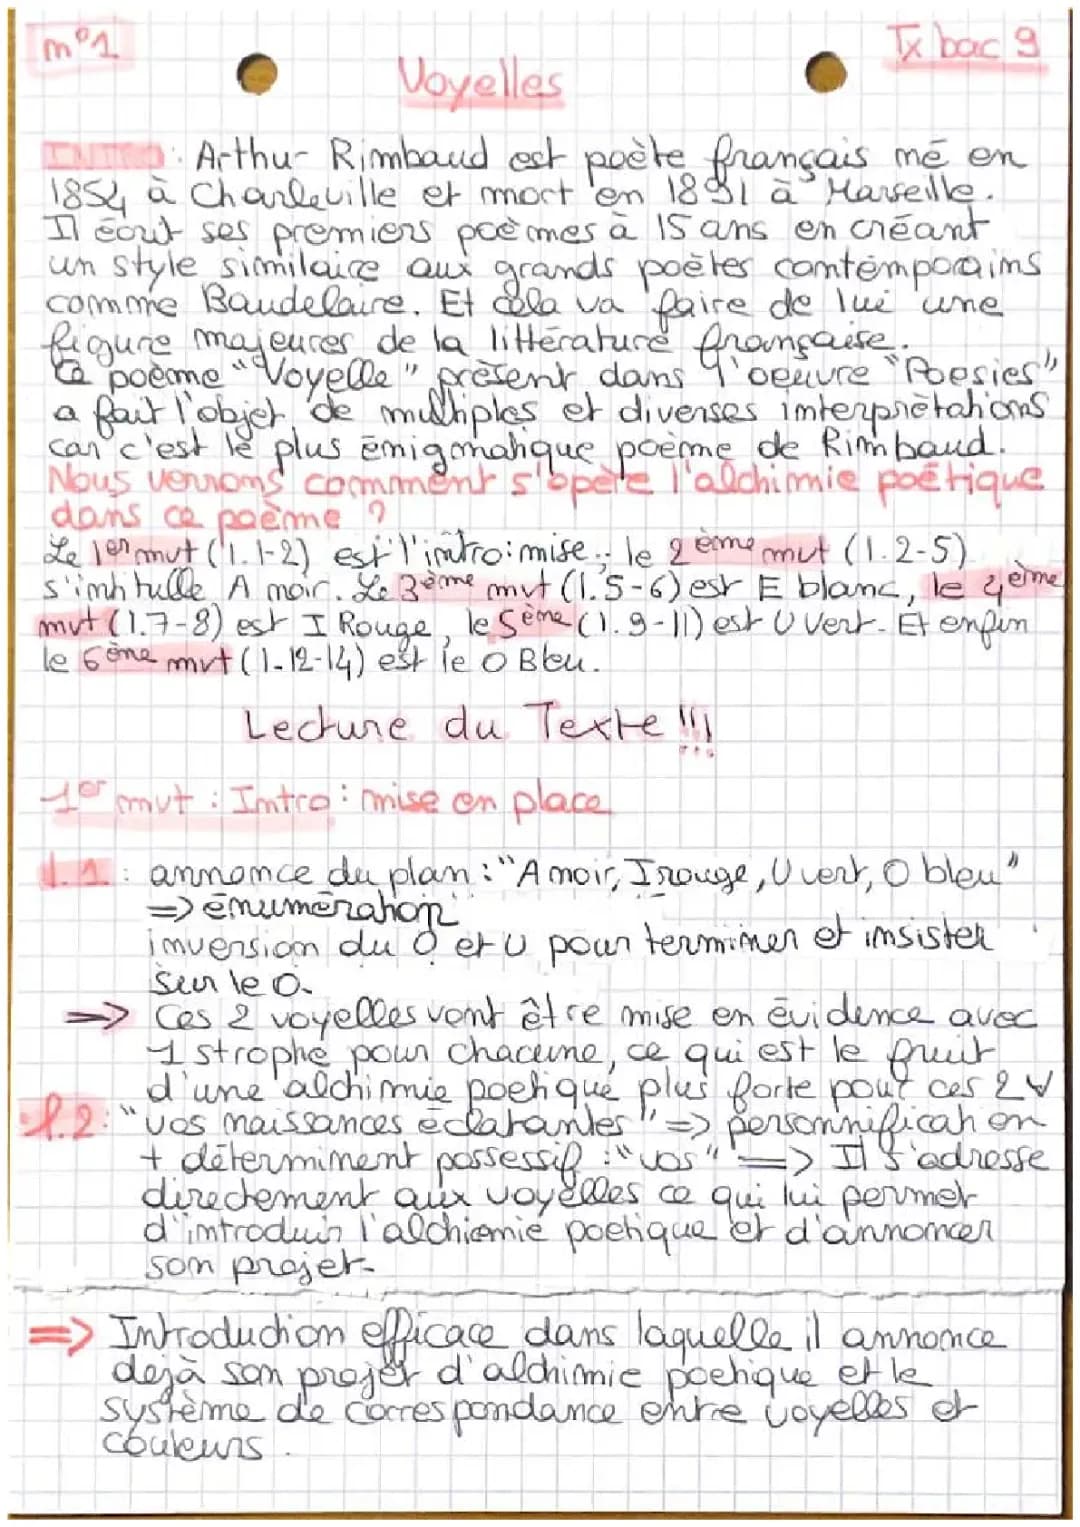 m°1
Tx bac 9
Voyelles
INTRO: Arthur Rimbaud est poète français né en
1854 à Charleville et mort en 1891 à Marseille.
Il écrit ses premiers poèmes à 15 ans en créant
un style similaire aux grands poètes contemporains
comme Baudelaire. Et cela va faire de lui une
figure majeures de la littérature française.
Ce poème "Voyelle" présent dans l'oeuvre "Poesies"
a fait l'objet de multiples et diverses interprétations
car c'est le plus énigmatique poème de Rimbaud.
Nous verrons comment s'opère l'alchimie poétique
dans ce poème ?
Le 1er mvt (l.1-2) est l'intro: mise.. le 2ème mvt (l.2-5)
s'intitulle A noir. Le 3ème mvt (l.5-6) est E blanc, le 4ème
mvt (l.7-8) est I Rouge, le 5ème (l.9-11) est U Vert. Et enfin
le 6ème mvt (l-12-14) est le O Bleu.
Lecture du Texte !!!
1er mvt : Intro : mise en place
l.1: annonce du plan : "A noir, I rouge, U vert, O bleu"
=> énumération
inversion du O et U pour terminer et insister
sur le O.
=> Ces 2 voyelles vont être mise en évidence avec
1 strophe pour chacune, ce qui est le fruit
d'une alchimie poetique plus forte pour ces 2 V
l.2: "vos naissances éclatantes" => personnification
+ déterminent possessif : "vos" => Il s'adresse
directement aux voyelles ce qui lui permet
d'introduir l'alchiemie poetique et d'annoncer
son projet.
=> Introduction efficace dans laquelle il annonce
dejà son projet d'alchimie poetique et le
système de correspondance entre voyelles et
couleurs.